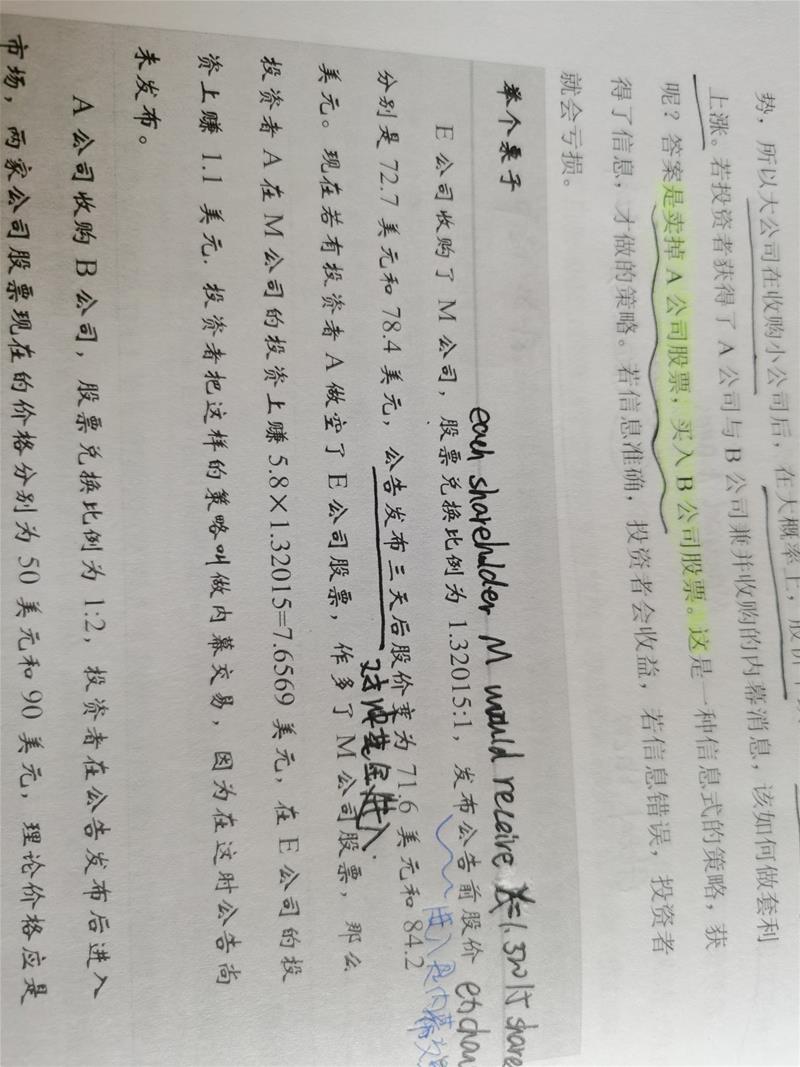 势，所以大公司在收购小公司后，在大概率上，股价
上涨。若投资者获得了 A 公司与 B 公司兼并收购的内幕消息，该如何做套利
呢？答案是卖掉 A 公司股票，买入 B 公司股票。这是一种信息式的策略，获
得了信息，才做的策略。若信息准确，投资者会收益，若信息错误，投资者
就会亏损。
举个栗子
each shareholder M would receive
share
E 公司收购了 M 公司，股票兑换比例为 1.32015:1，发布公告前股价
进入是内幕交
分别是 72.7 美元和 78.4 美元，公告发布三天后股价变为 71.6 美元和 84.2
对冲基金进入.
美元。现在若有投资者 A 做空了 E 公司股票，作多了 M 公司股票，那么
投资者 A 在 M 公司的投资上赚 5.8×1.32015=7.6569 美元，在 E 公司的投
资上赚 1.1 美元．投资者把这样的策略叫做内幕交易，因为在这时公告尚
未发布。
A 公司收购 B 公司，股票兑换比例为 1:2，投资者在公告发布后进入
市场，两家公司股票现在的价格分别为 50 美元和 90 美元，理论价格应是